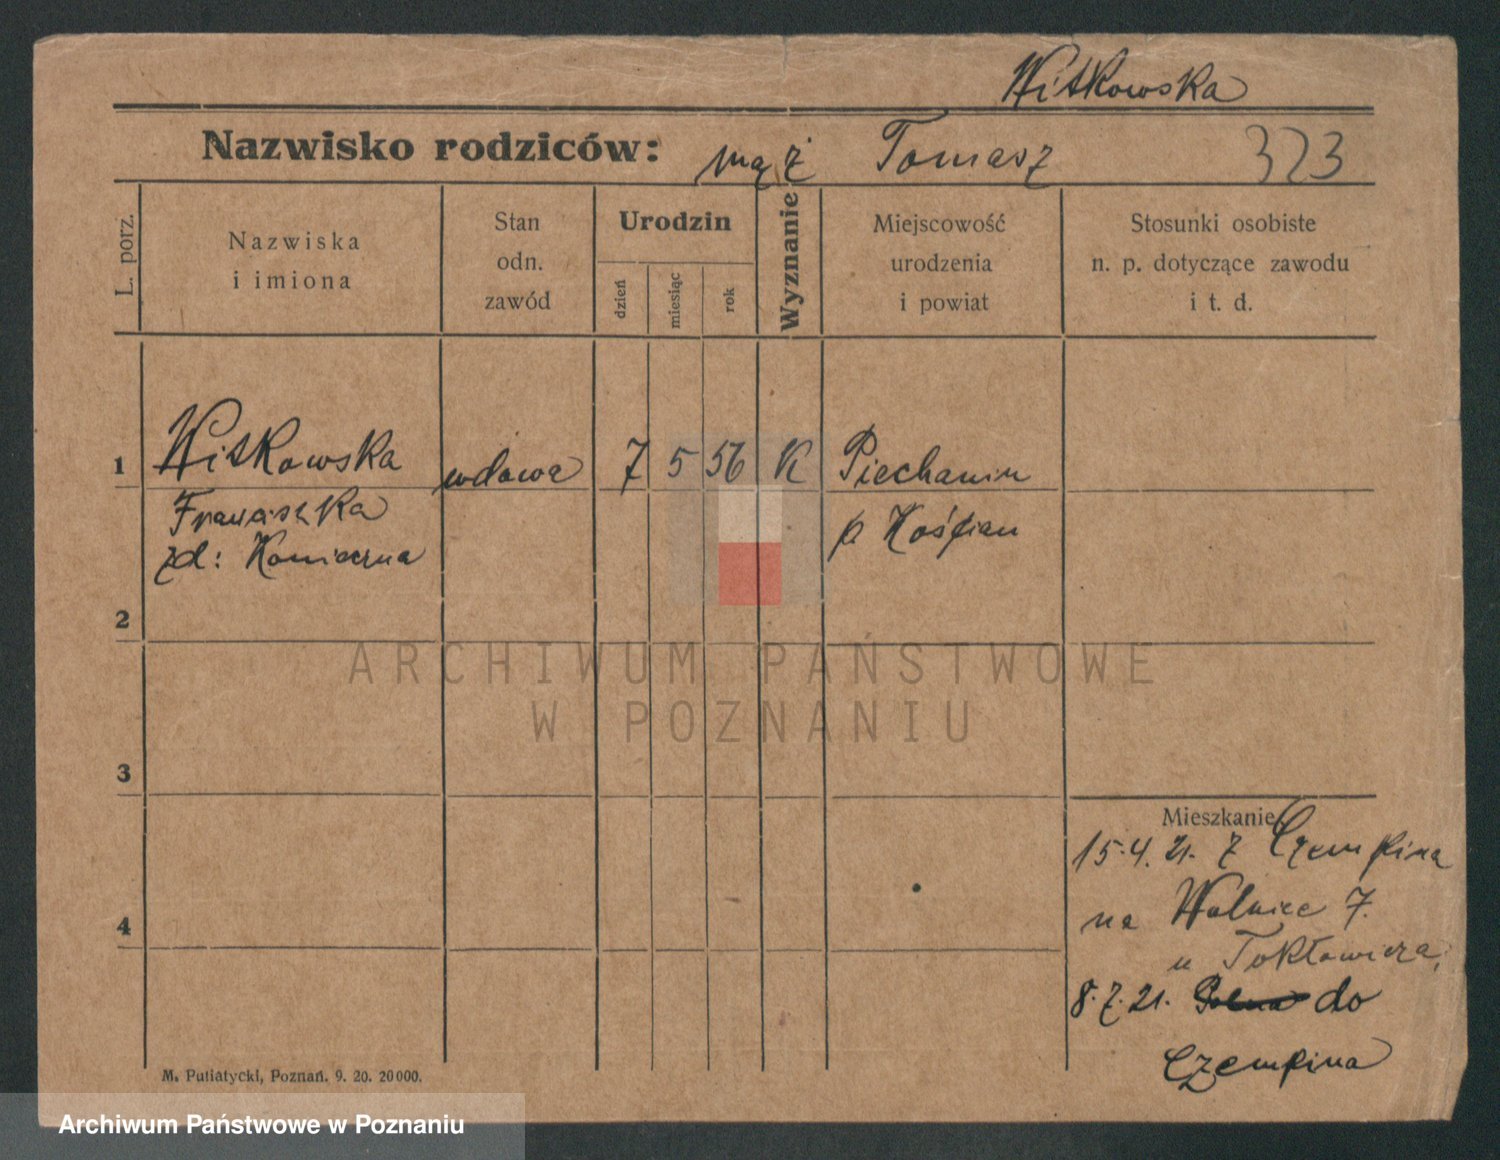 Witkowska
Nazwisko rodziców: mąż Tomasz 323
L. porz.
Nazwiska
i imiona
Stan
odn.
zawód
Urodzin
dzień
miesiąc
rok
Wyznanie
Miejscowość
urodzenia
i powiat
Stosunki osobiste
n. p. dotyczące zawodu
i t. d.
1 Witkowska wdowa 7 5 56 K Piechanin
Franciszka p. Kościan
zd:
2
3
4
Mieszkanie
15.4.21. z Czempina
na Wolnice 7.
u Tokłowicza,
8.7.21. do
Czempina
M. Putiatycki, Poznań. 9. 20. 20000.
ARCHIWUM PAŃSTWOWE
W POZNANIU
Archiwum Państwowe w Poznaniu